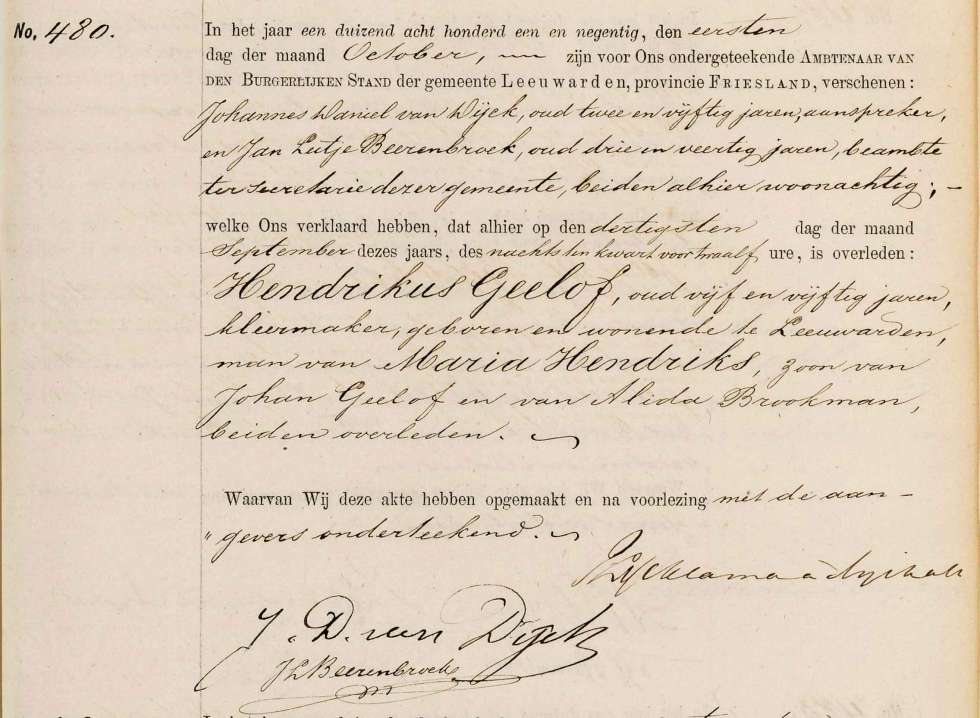 No. 480.
In het jaar een duizend acht honderd een en negentig, den eersten
dag der maand October, — zijn voor Ons ondergeteekende AMBTENAAR VAN
DEN BURGERLIJKEN STAND der gemeente Leeuwarden, provincie FRIESLAND, verschenen:
Johannes Daniel van Dijck, oud twee en vijftig jaren, aanspreker,
en Jan Lutje Beerenbroek, oud drie en veertig jaren, beambte
ter secretarie dezer gemeente, beiden alhier woonachtig; –
welke Ons verklaard hebben, dat alhier op den dertigsten dag der maand
September dezes jaars, des nachts ten kwart voor twaalf ure, is overleden:
Hendrikus Geelof, oud vijf en vijftig jaren,
kleermaker, geboren en wonende te Leeuwarden,
man van Maria Hendriks, zoon van
Johan Geelof en van Alida Brookman,
beiden overleden. ~
Waarvan Wij deze akte hebben opgemaakt en na voorlezing met de aan –
„ gevers onderteekend. ~
J. D. van Dijck
JLBeerenbroek